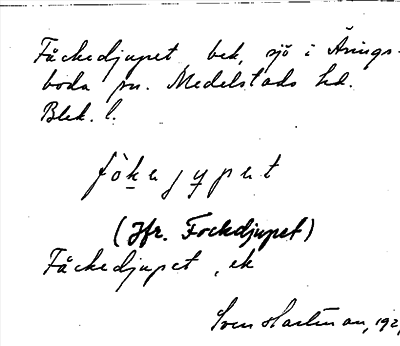 Fåckedjupet bek, sjö i Årings-
boda sn. Medelstads hd.
Blek. l.
fökejypet
(Jfr. Fockdjupet)
Fåckedjupet, ek
Sven Hartman, 192